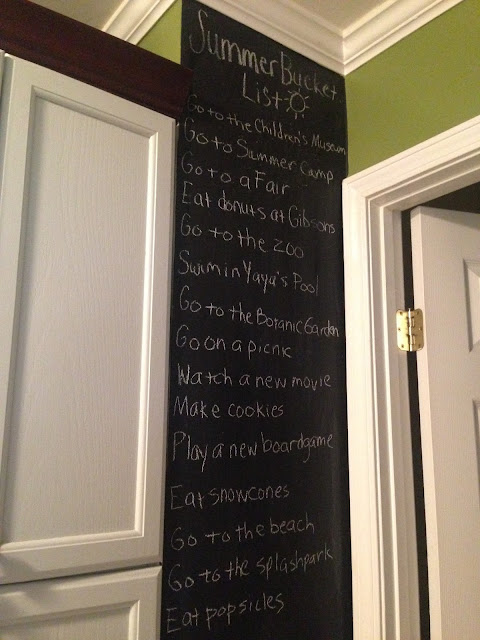 Summer Bucket
List
Go to the Children's Museum
Go to Summer Camp
Go to a Fair
Eat donuts at Gibsons
Go to the zoo
Swim in Yaya's Pool
Go to the Botanic Garden
Go on a picnic
Watch a new movie
Make cookies
Play a new boardgame
Eat snowcones
Go to the beach
Go to the splashpark
Eat popsicles